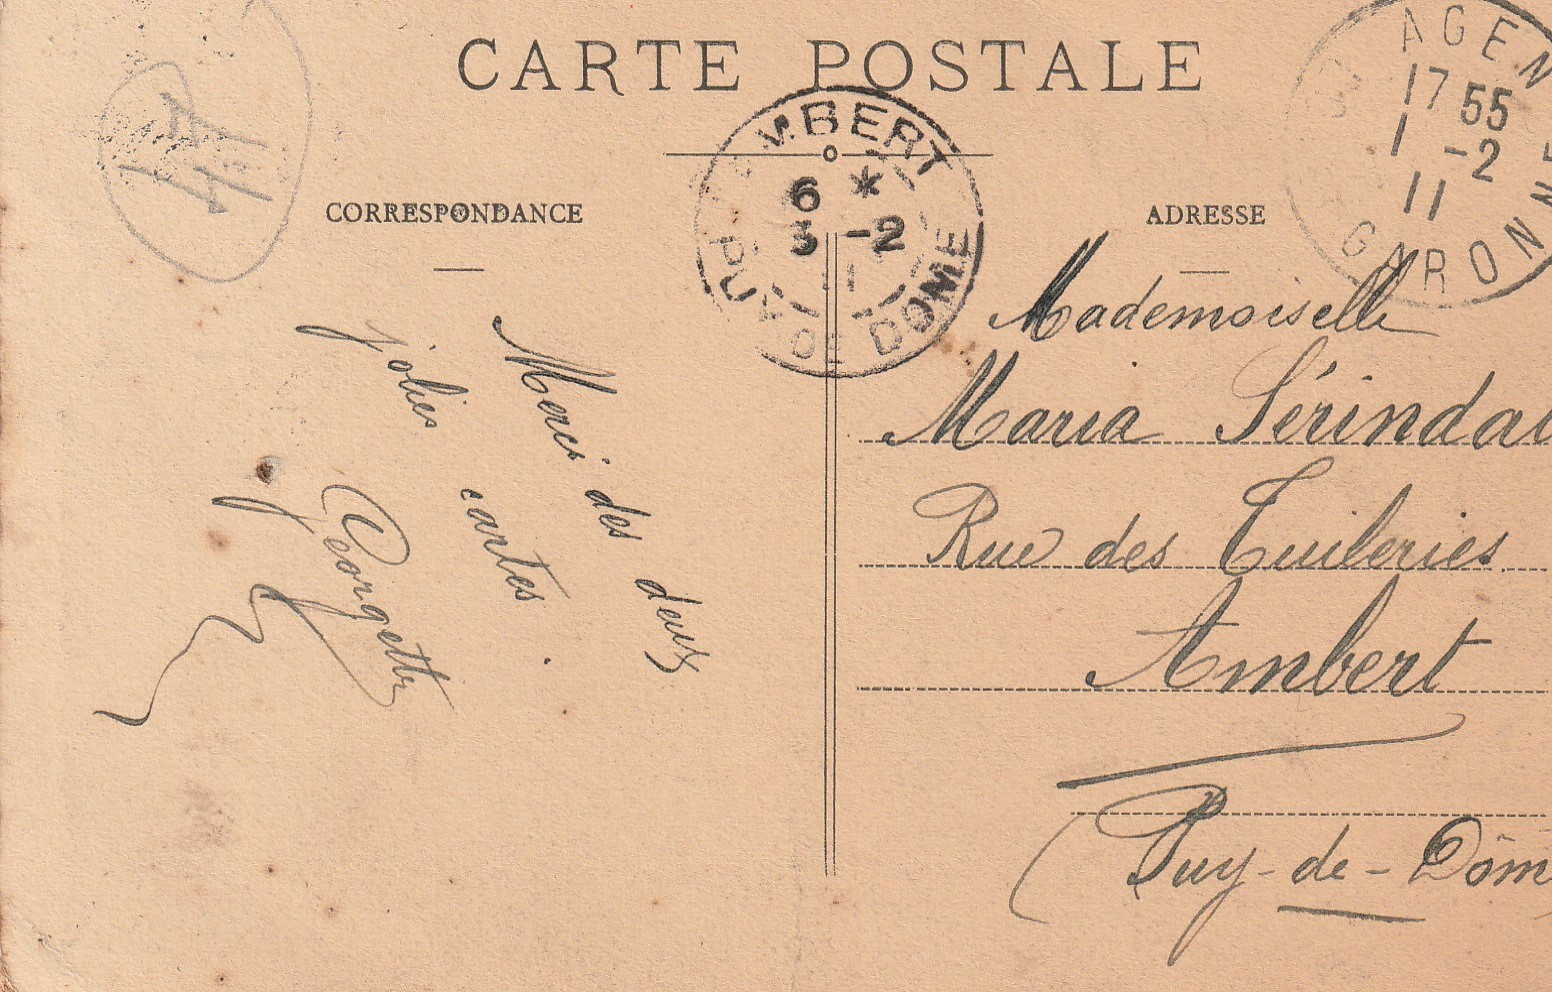 CARTE POSTALE
CORRESPONDANCE
ADRESSE
AGEN
17 55
1 -2
11
GARONNE
AMBERT
6 *
3 -2
11
PUY DE DOME
Merci des deux
jolies cartes.
Georgette
Mademoiselle
Maria Sérindat
Rue des Tuileries
Ambert
(Puy-de-Dôm